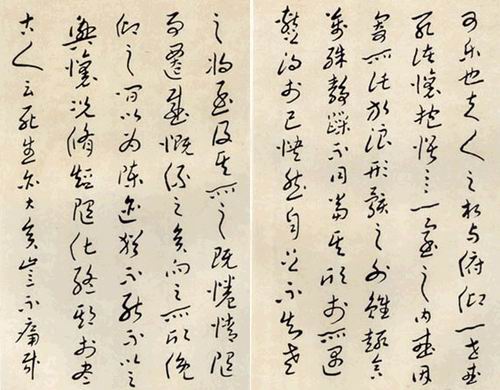 可樂也夫人之相與俯仰一世或
取諸懷抱悟言一室之內或因
寄所託放浪形骸之外雖趣舍
萬殊靜躁不同當其欣於所遇
暫得於己快然自足不知老
之將至及其所之既惓情隨
事遷感慨係之矣向之所欣俛
仰之間以為陳迹猶不能不以之
興懷況脩短隨化終期於盡
古人云死生亦大矣豈不痛哉